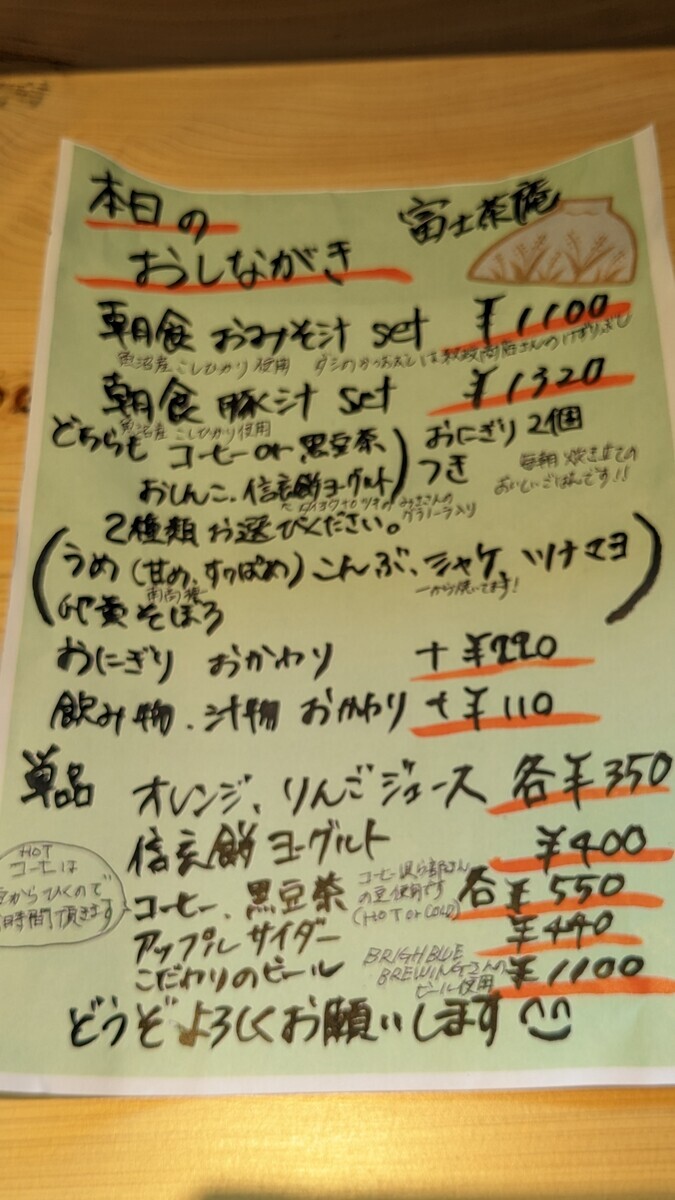 本日の
おしながき
富士茶庵
朝食 おみそ汁 set ¥1100
魚沼産こしひかり使用 ダシのかつおぶしは 秋政商店さんのけずりぶし
朝食 豚汁 set ¥1320
魚沼産こしひかり使用
どちらも コーヒー or 黒豆茶
おしんこ、信玄餅ヨーグルト
おにぎり 2個
つき
毎朝 炊き立ての
おいしいごはんです!!
みきさんの
グラノーラ入り
2種類 お選びください。
うめ (甘め、すっぱめ) こんぶ、シャケ、ツナマヨ
南高梅
一から焼いてます!
そぼろ
おにぎり おかわり +¥220
飲み物、汁物 おかわり +¥110
単品 オレンジ、りんごジュース 各¥350
信玄餅 ヨーグルト ¥400
コーヒー、黒豆茶 各¥550
コーヒー倶楽部さん
の豆使用です
(HOT or COLD)
HOT
コーヒーは
豆からひくので
時間頂きます
アップルサイダー ¥440
こだわりのビール ¥1100
BRIGHBLUE
BREWINGさんの
ビール使用
どうぞよろしくお願いします